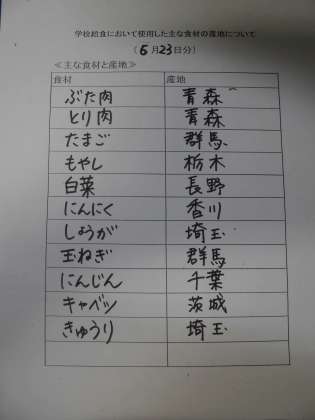 学校給食において使用した主な食材の産地について
(6月23日分)
≪主な食材と産地≫
食材 産地
ぶた肉 青森
とり肉 青森
たまご 群馬
もやし 栃木
白菜 長野
にんにく 香川
しょうが 埼玉
玉ねぎ 群馬
にんじん 千葉
キャベツ 茨城
きゅうり 埼玉